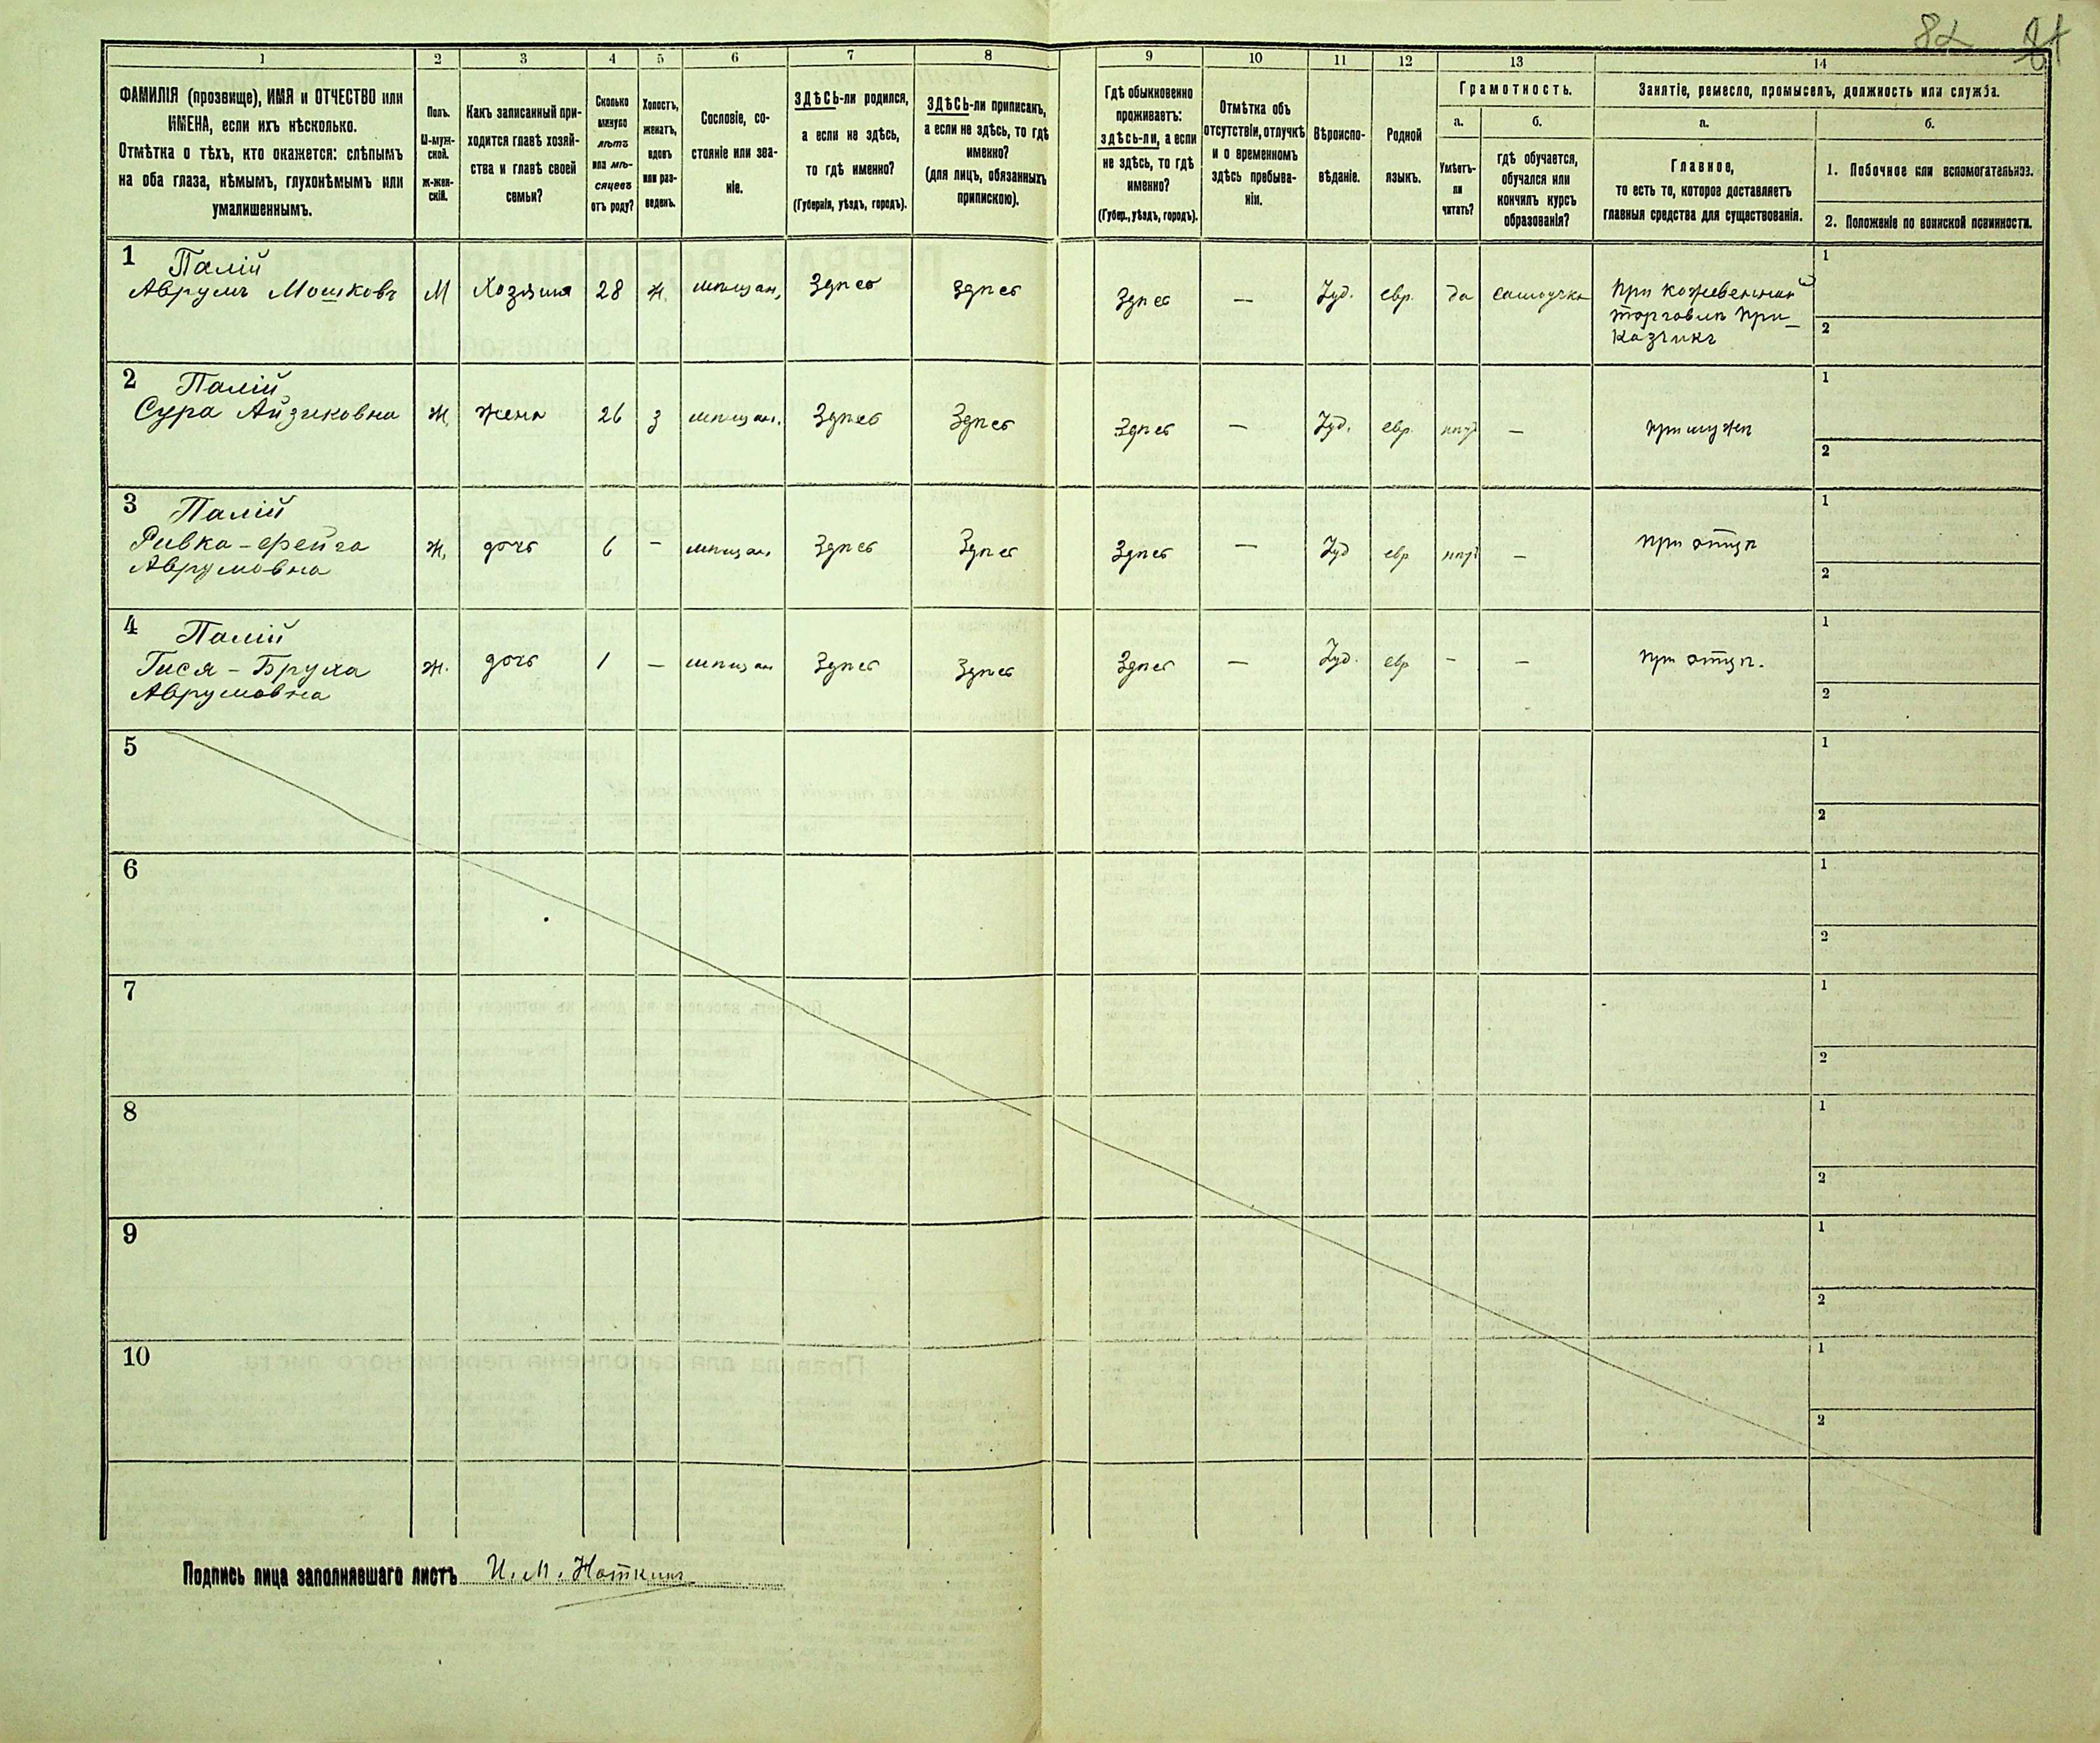 82
1 2 3 4 5 6 7 8 9 10 11 12 13 14
ФАМИЛІЯ (прозвище), ИМЯ и ОТЧЕСТВО или
ИМЕНА, если ихъ нѣсколько.
Отмѣтка о тѣхъ, кто окажется: слѣпымъ
на оба глаза, нѣмымъ, глухонѣмымъ или
умалишеннымъ.
Полъ.
М-муж-
ской.
Ж-жен-
скій.
Какъ записанный при-
ходится главѣ хозяй-
ства и главѣ своей
семьи?
Сколько
минуло
лѣтъ
или мѣ-
сяцевъ
отъ роду?
Холостъ,
женатъ,
вдовъ
или раз-
веденъ.
Сословіе, со-
стояніе или зва-
ніе.
ЗДѢСЬ-ли родился,
а если не здѣсь,
то гдѣ именно?
(Губернія, уѣздъ, городъ).
ЗДѢСЬ-ли приписанъ,
а если не здѣсь, то гдѣ
именно?
(для лицъ, обязанныхъ
припискою).
Гдѣ обыкновенно
проживаетъ:
здѣсь-ли, а если
не здѣсь, то гдѣ
именно?
(Губер., уѣздъ, городъ).
Отмѣтка объ
отсутствіи, отлучкѣ
и о временномъ
здѣсь пребыва-
ніи.
Вѣроиспо-
вѣданіе.
Родной
языкъ.
Грамотность.
а.
Умѣетъ-
ли
читать?
б.
гдѣ обучается,
обучался или
кончилъ курсъ
образованія?
Занятіе, ремесло, промыселъ, должность или служба.
а.
Главное,
то есть то, которое доставляетъ
главныя средства для существованія.
б.
1. Побочное или вспомогательное.
2. Положеніе по воинской повинности.
1 Палій
Аврумъ Мошковъ М Хозяинъ 28 ж. мѣщан. Здѣсь Здѣсь Здѣсь — Іуд. евр. да самоучка
при кожевенной
торговлѣ при-
казчикъ
1
2
2 Палій
Сура Айзиковна ж. жена 26 з мѣщан. Здѣсь Здѣсь Здѣсь — Іуд. евр. нѣтъ — при мужѣ
1
2
3 Палій
Ривка-Фейга
Аврумовна ж. дочь 6 — мѣщан. Здѣсь Здѣсь Здѣсь — Іуд евр нѣтъ — при отцѣ
1
2
4 Палій
Гися-Бруха
Аврумовна ж. дочь 1 — мѣщан Здѣсь Здѣсь Здѣсь — Іуд. евр — — при отцѣ.
1
2
5
1
2
6
1
2
7
1
2
8
1
2
9
1
2
10
1
2
Подпись лица заполнявшаго листъ И. М. Ноткинъ